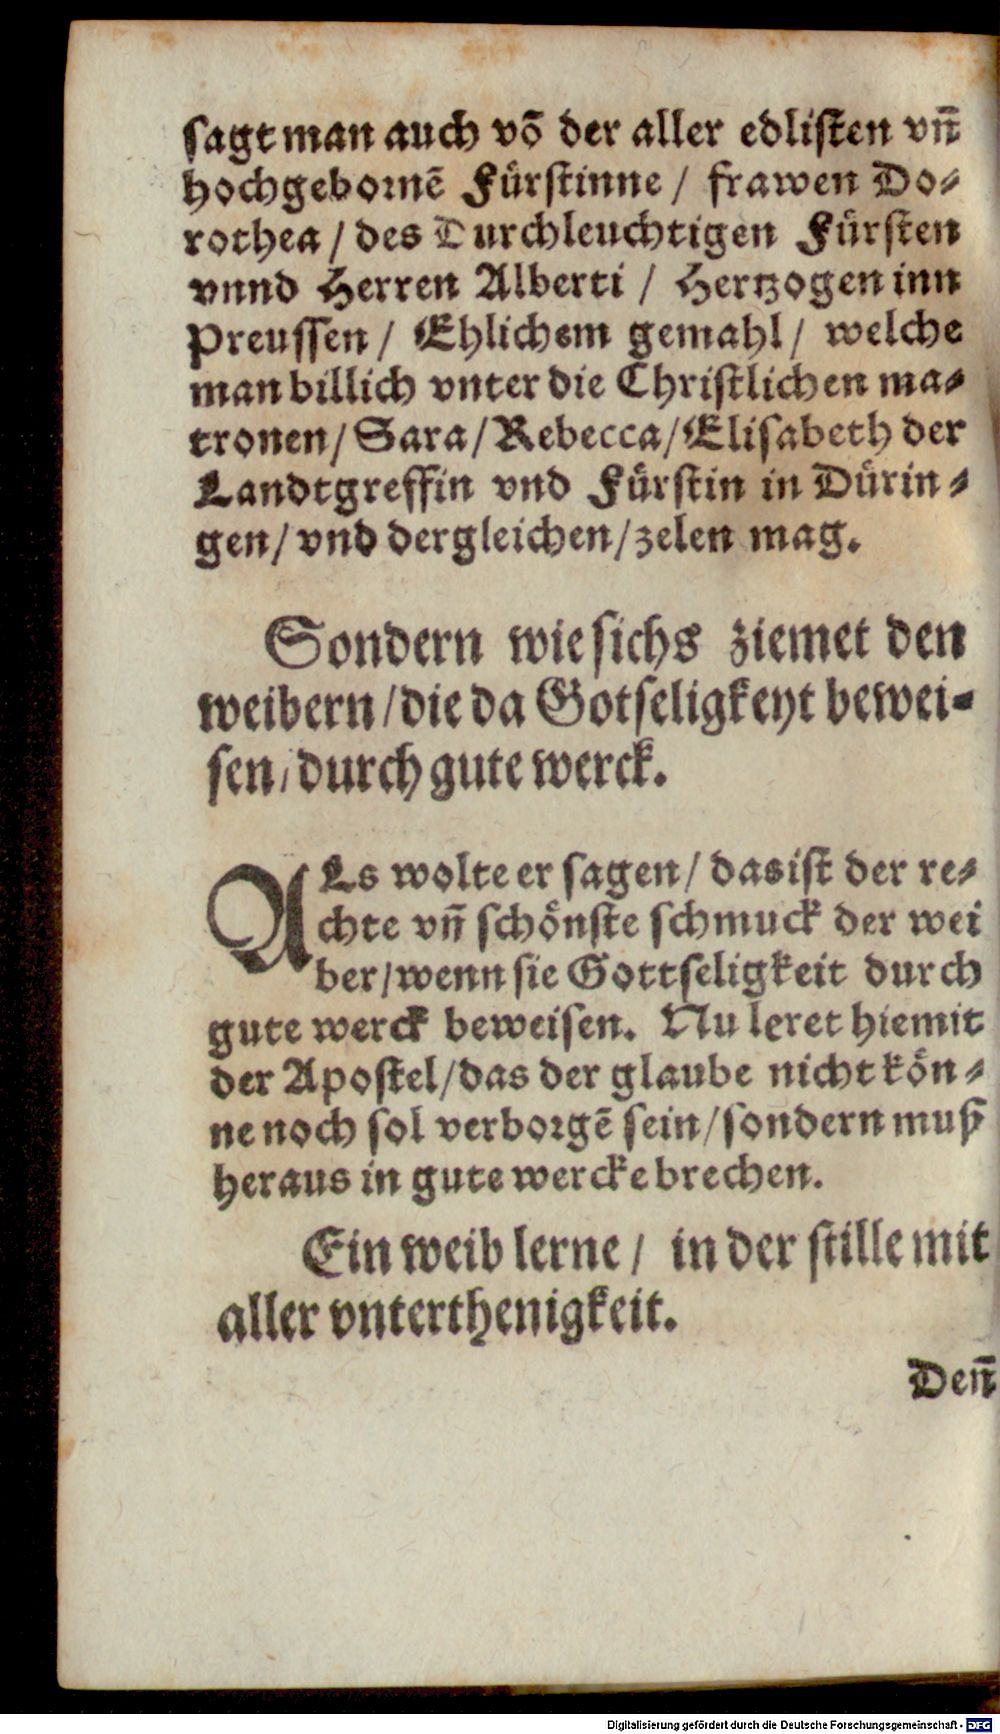 sagt man auch võ der aller edlisten vñ
hochgebornẽ Fürstinne / frawen Do-
rothea / des Durchleuchtigen Fürsten
vnnd Herren Alberti / Hertzogen inn
Preussen / Ehlichem gemahl / welche
man billich vnter die Christlichen ma-
tronen / Sara / Rebecca / Elisabeth der
Landtgreffin vnd Fürstin in Dürin-
gen / vnd dergleichen / zelen mag.
Sondern wie sichs ziemet den
weibern / die da Gotseligkeyt bewei-
sen / durch gute werck.
ALs wolte er sagen / das ist der re-
chte vñ schönste schmuck der wei
ber / wenn sie Gottseligkeit durch
gute werck beweisen. Nu leret hiemit
der Apostel / das der glaube nicht kön-
ne noch sol verborgẽ sein / sondern muß
heraus in gute wercke brechen.
Ein weib lerne / in der stille mit
aller vnterthenigkeit.
Den̄
Digitalisierung gefördert durch die Deutsche Forschungsgemeinschaft - DFG